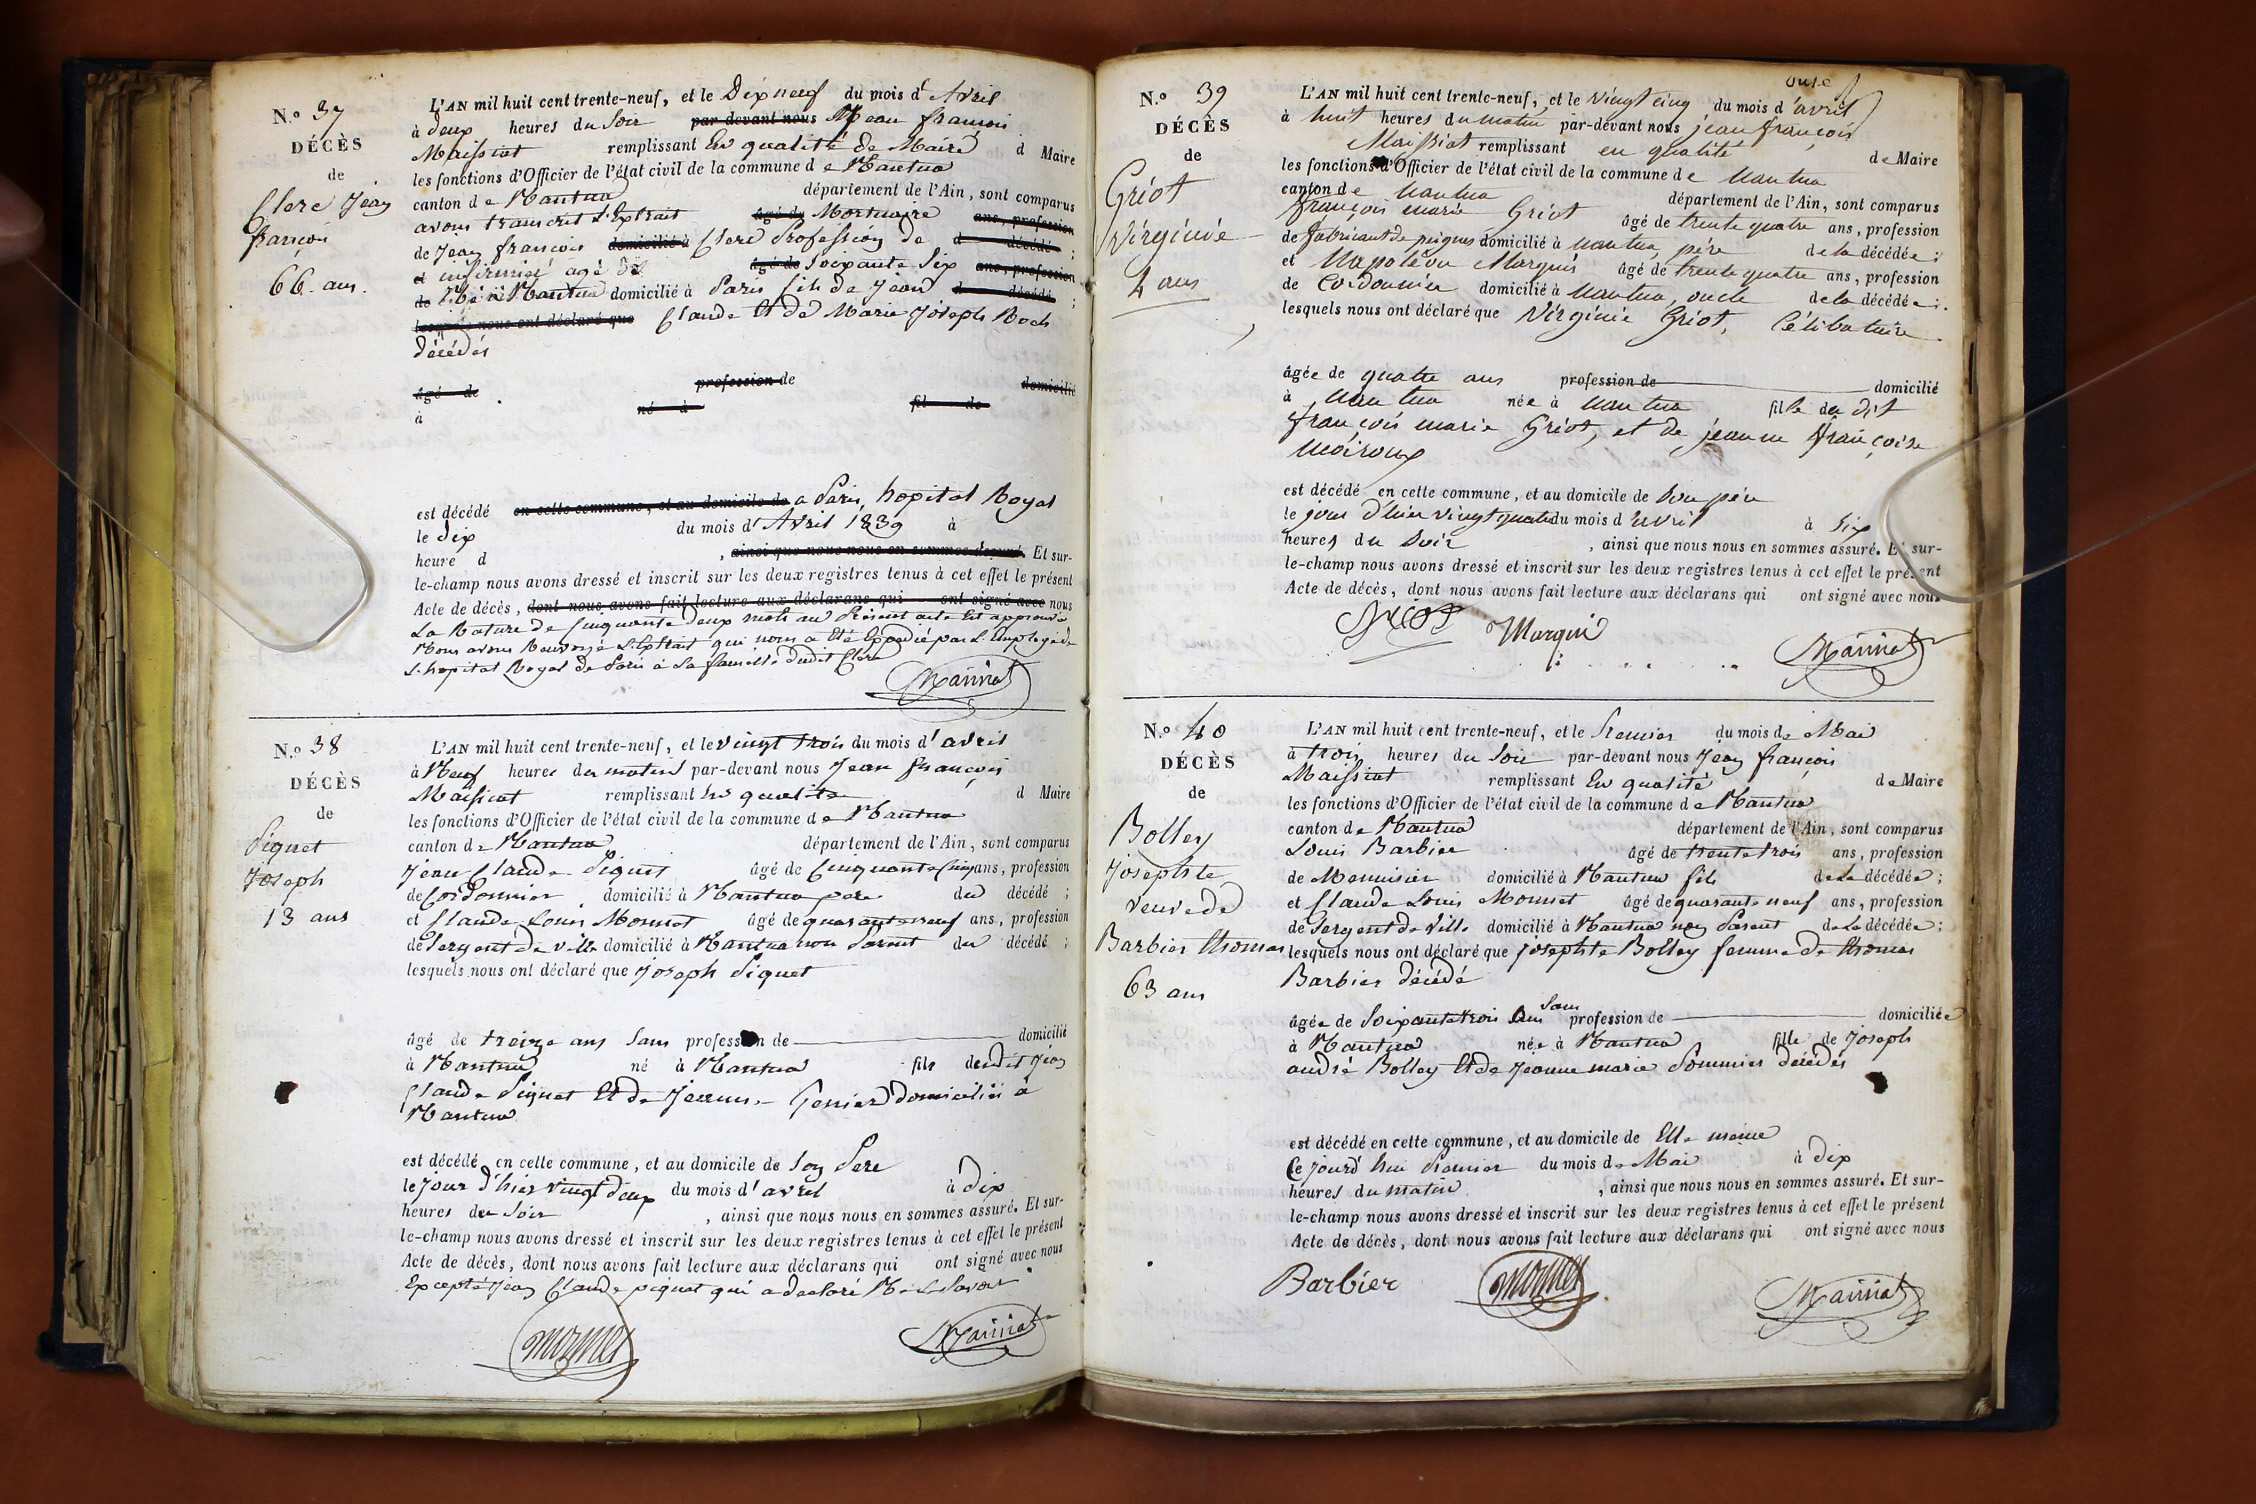 N.o 37
DÉCÈS
de
Clerc Jean
françois
66 ans.
L'AN mil huit cent trente-neuf, et le Dix neuf du mois d'Avril
à deux heures du Soir par devant nous Jean françois
Maissiat remplissant En qualité de Maire d Maire
les fonctions d'Officier de l'état civil de la commune de Nantua
canton de Nantua département de l'Ain, sont comparus
avons transcrit l'Extrait âgé de Mortuaire ans, profession
de Jean françois domicilié à Clerc Profession de d décédé ;
et infirmier agé de âgé de Soixante Six ans, profession
de Né à Nantua domicilié à Paris fils de Jean d décédé ;
lesquels nous ont déclaré que Claude Et de Marie Joseph Roch
décédés
âgé de profession de domicilié
à né à fil de
est décédé en cette commune, et au domicile de a Paris, hopital Royal
le dix du mois d'Avril 1839 à
heure d , ainsi que nous nous en sommes assuré. Et sur-
le-champ nous avons dressé et inscrit sur les deux registres tenus à cet effet le présent
Acte de décès, dont nous avons fait lecture aux déclarans qui ont signé avec nous
La Rature de Cinquante deux mots au Présent acte Est approuvée
Nous avons Renvoyé L'Extrait qui nous a Eté Expédié par L'Employé de
L'hopital Royal de Paris à La famille dudit Clerc
Maissiat
N.o 38
DÉCÈS
de
Piquet
Joseph
13 ans
L'AN mil huit cent trente-neuf, et le vingt trois du mois d'avril
à Neuf heures du matin par-devant nous Jean françois
Maissiat remplissant En qualité d Maire
les fonctions d'Officier de l'état civil de la commune de Nantua
canton de Nantua département de l'Ain, sont comparus
Jean Claude Piquet âgé de Cinquante Cinq ans, profession
de Cordonnier domicilié à Nantua pere du décédé ;
et Claude Louis Monnet âgé de quarante neuf ans, profession
de Sergent de ville domicilié à Nantua non Parent du décédé ;
lesquels nous ont déclaré que Joseph Piquet
âgé de treize ans Sans profession de domicilié
à Nantua né à Nantua fils dudit Jean
Claude Piquet Et de Jeanne domiciliés à
Nantua
est décédé en cette commune, et au domicile de Son Pere
le jour d'hier vingt deux du mois d'avril à dix
heures du Soir , ainsi que nous nous en sommes assuré. Et sur-
le-champ nous avons dressé et inscrit sur les deux registres tenus à cet effet le présent
Acte de décès, dont nous avons fait lecture aux déclarans qui ont signé avec nous
Excepté Jean Claude piquet qui a declaré Ne Le Savoir
monnet Maissiat
N.o 39
DÉCÈS
de
Griot
Virginie
4 ans
onze
L'AN mil huit cent trente-neuf, et le vingt cinq du mois d'avril
à huit heures du matin par-devant nous jean françois
Maissiat remplissant en qualité de Maire
les fonctions d'Officier de l'état civil de la commune de Nantua
canton de Nantua département de l'Ain, sont comparus
françois marie Griot âgé de trente quatre ans, profession
de fabricant de peignes domicilié à Nantua, père de la décédée ;
et Napoléon Marquis âgé de trente quatre ans, profession
de Cordonnier domicilié à Nantua, oncle de la décédée ;
lesquels nous ont déclaré que Virginie Griot, Célibataire
âgée de quatre ans profession de domicilié
à Nantua née à Nantua fille du dit
françois marie Griot, et de jeanne françoise
Moiroux
est décédé en cette commune, et au domicile de Son père
le jour d'hier vingt quatre du mois d'avril à Six
heures du Soir , ainsi que nous nous en sommes assuré. Et sur-
le-champ nous avons dressé et inscrit sur les deux registres tenus à cet effet le présent
Acte de décès, dont nous avons fait lecture aux déclarans qui ont signé avec nous
Griot Marqui Maissiat
N.o 40
DÉCÈS
de
Bolley
Josephte
veuve de
Barbier thomas
63 ans
L'AN mil huit cent trente-neuf, et le Premier du mois de Mai
à trois heures du Soir par-devant nous Jean françois
Maissiat remplissant En qualité de Maire
les fonctions d'Officier de l'état civil de la commune de Nantua
canton de Nantua département de l'Ain, sont comparus
Louis Barbier âgé de trente trois ans, profession
de Menuisier domicilié à Nantua fils de la décédée ;
et Claude Louis Monnet âgé de quarante neuf ans, profession
de Sergent de Ville domicilié à Nantua non Parent de la décédée ;
lesquels nous ont déclaré que josephte Bolley femme de thomas
Barbier décédé
âgée de Soixante trois ans Sans profession de domiciliée
à Nantua née à Nantua fille de Joseph
andré Bolley Et de Jeanne marie Sommier décédés
est décédé en cette commune, et au domicile de Elle même
Ce jourd'hui Premier du mois de Mai à dix
heures du matin , ainsi que nous nous en sommes assuré. Et sur-
le-champ nous avons dressé et inscrit sur les deux registres tenus à cet effet le présent
Acte de décès, dont nous avons fait lecture aux déclarans qui ont signé avec nous
Barbier monnet Maissiat